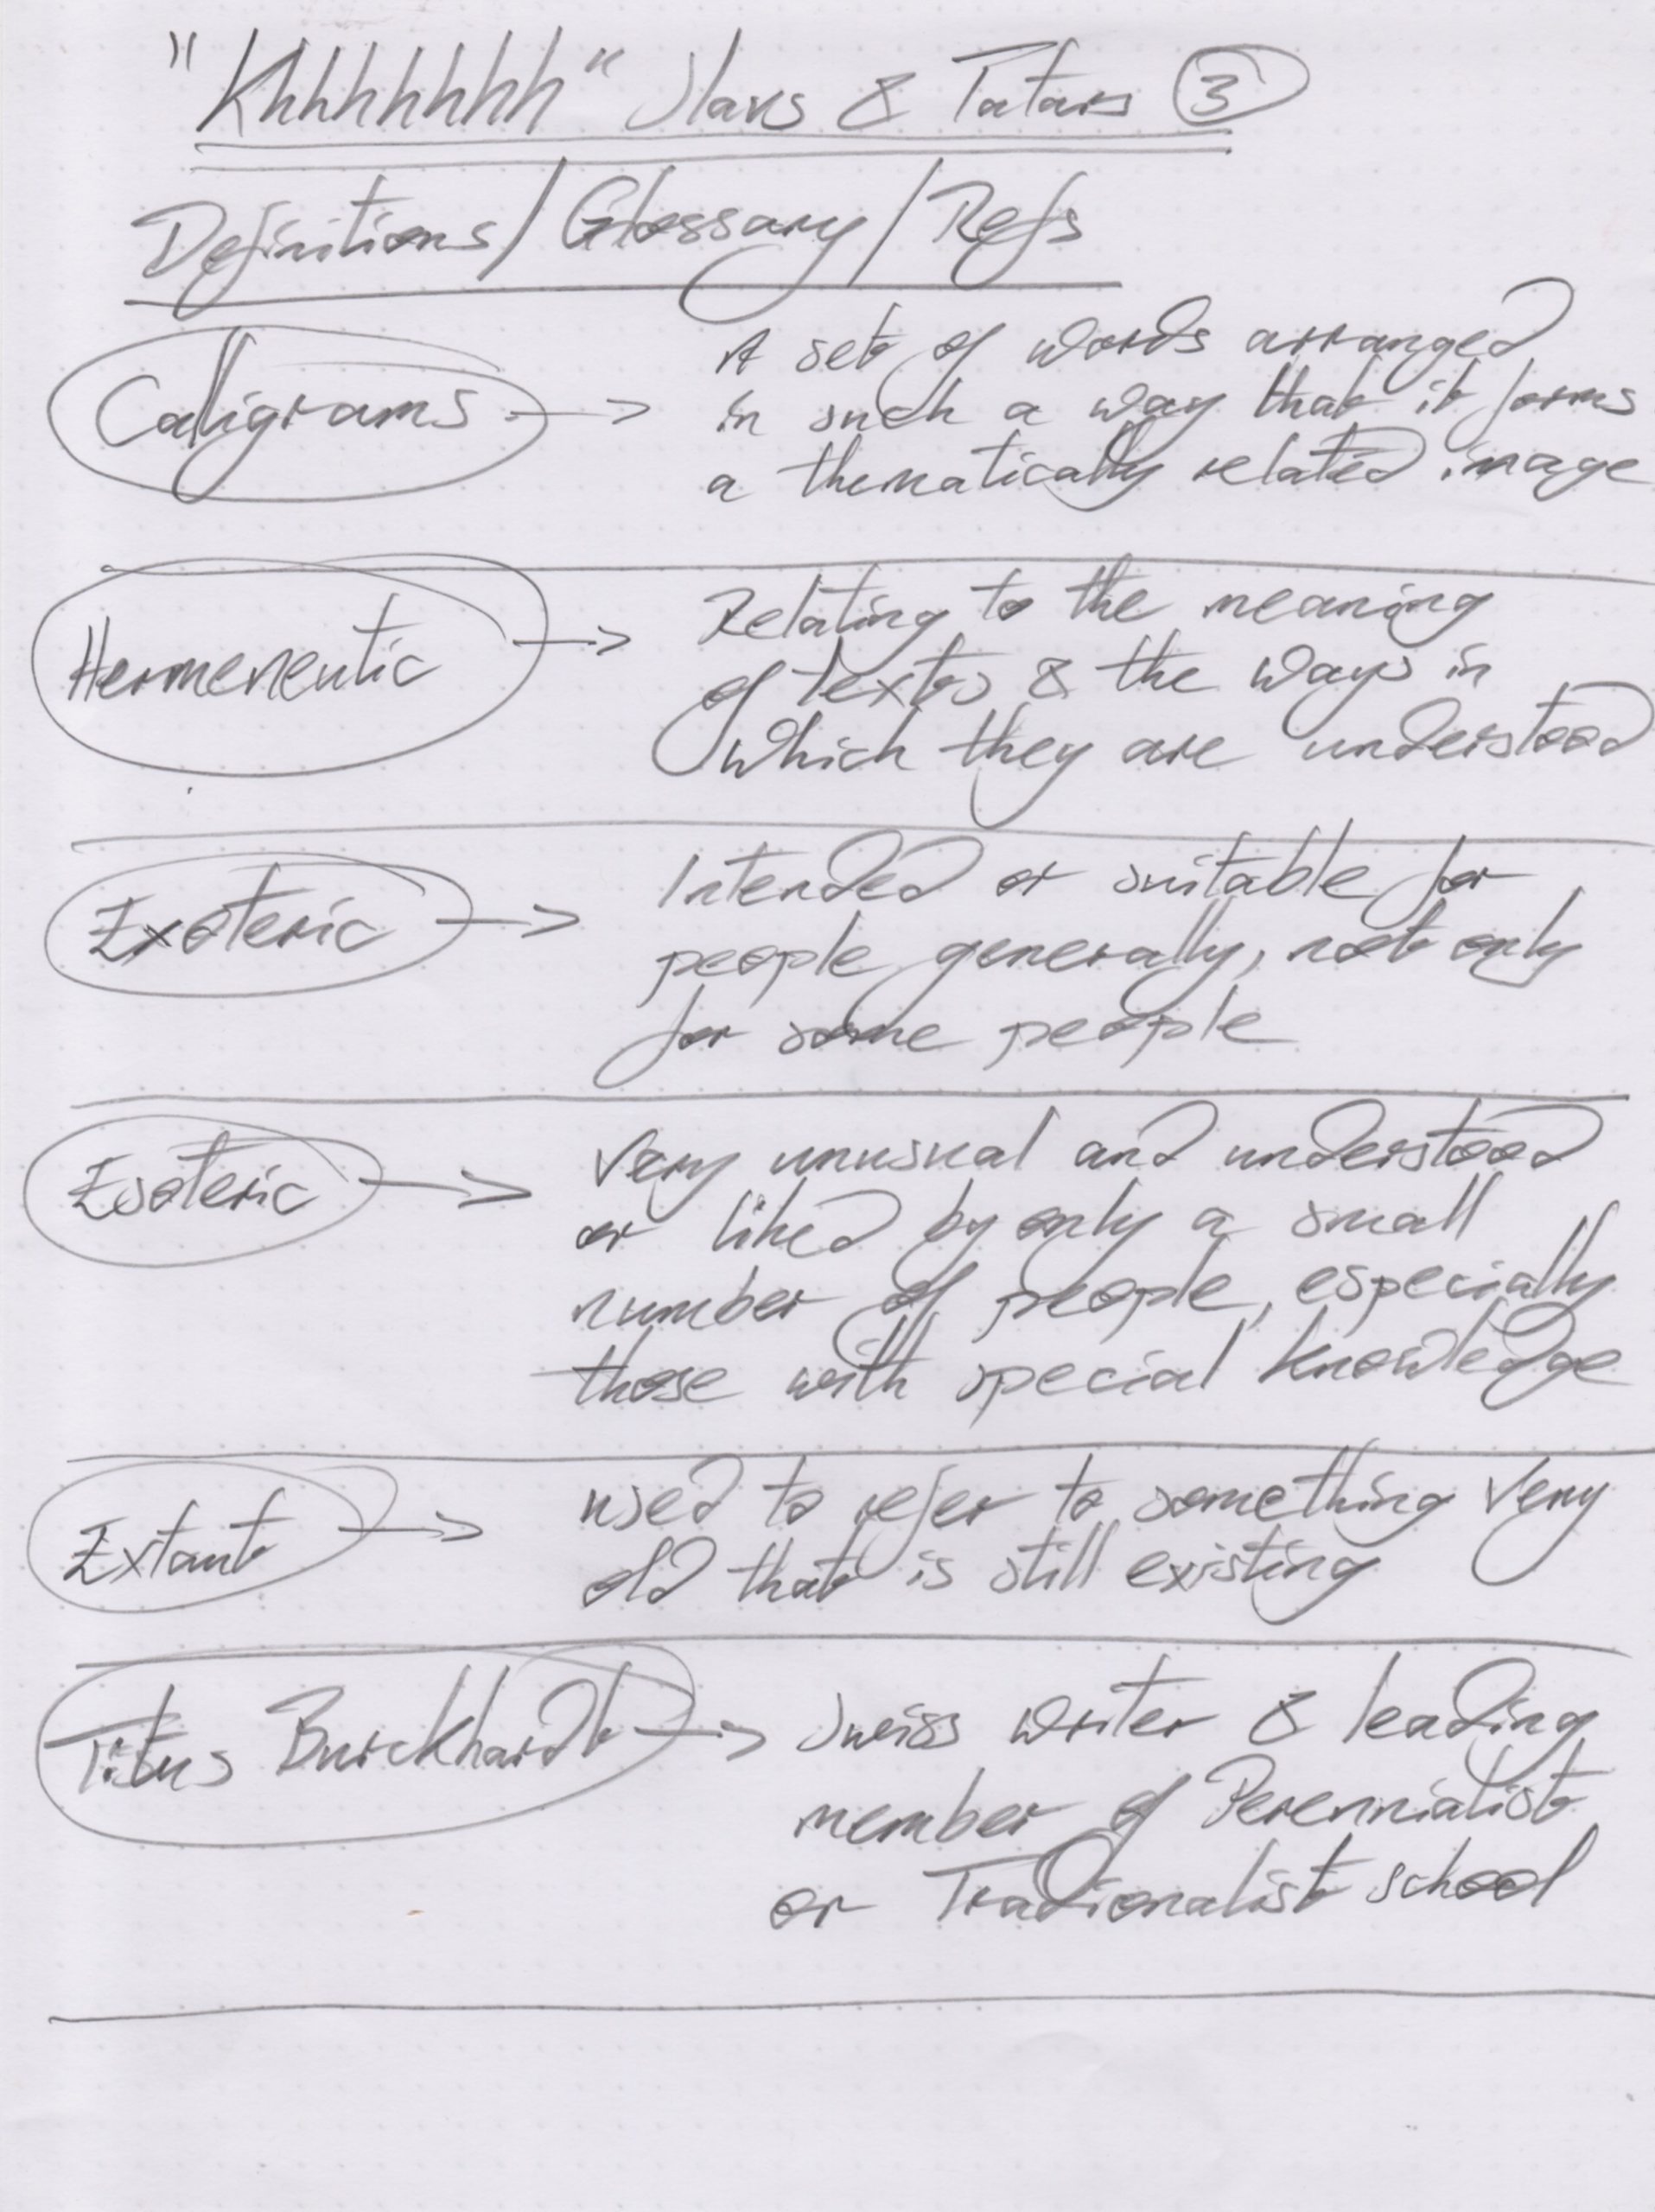 "Khhhhhhh" Slavs & Tatars ③
Definitions/Glossary/Refs
Calligrams → A set of words arranged
in such a way that it forms
a thematically related image
Hermeneutic → Relating to the meaning
of texts & the ways in
which they are understood
Exoteric → Intended or suitable for
people generally, not only
for some people
Esoteric → Very unusual and understood
or liked by only a small
number of people, especially
those with special knowledge
Extant → used to refer to something very
old that is still existing
Titus Burckhardt → Swiss writer & leading
member of Perennialist
or Tradionalist school